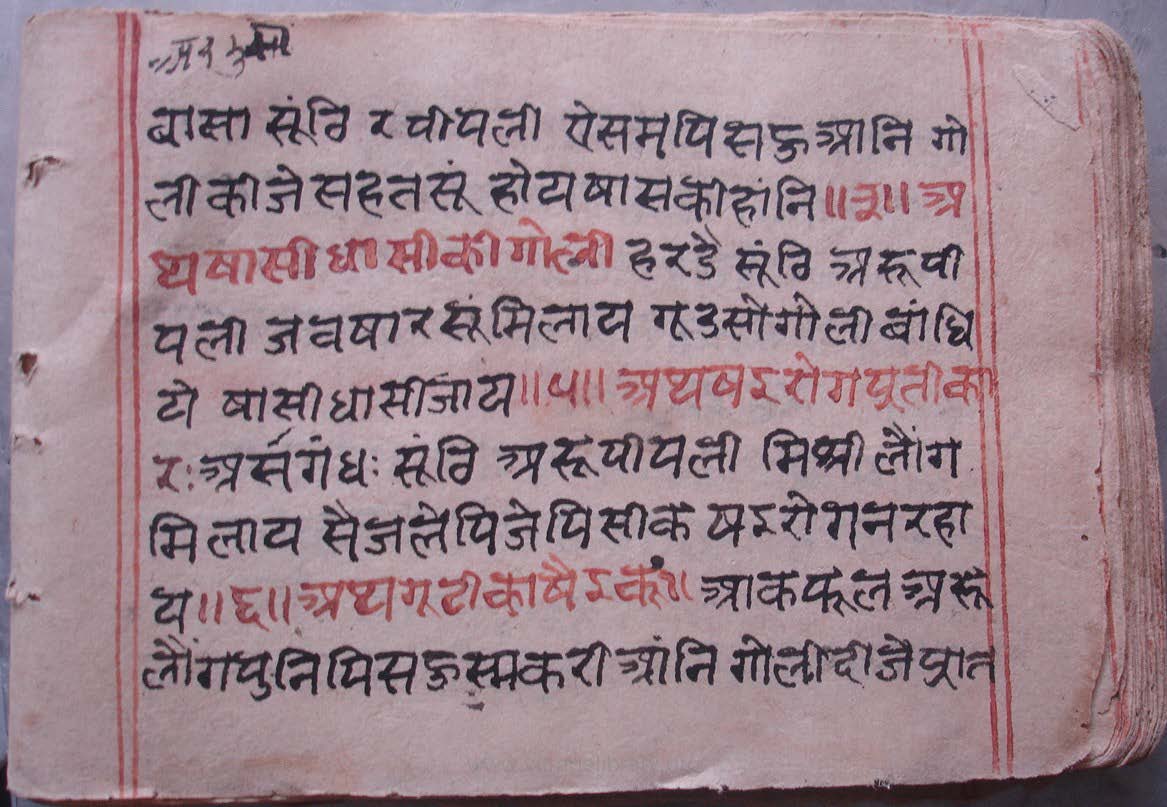 बासा सूंठि र पीपली ऐ सम पिसऊ आनि गो
ली कीजे सहत सूं होय षास की हांनि ॥३॥ अ
थ षासी धासी की गोली हरडै सूंठि अरू पी
पली जवषार सूं मिलाय गूड सो गोली बांधि
टो षासी धासी जाय ॥५॥ अथ षइ रोग प्रतीका
रः अर्सगंधः सूंठि अरू पीपली मिश्री लौंग
मिलाय सैजले पिजे पिसी क षइ रोग न रहा
य ॥६॥ अथ गूटीका षैइ कूं॥ आक फूल अरू
लौंग पुनि पिसऊ स्मकरी आंनि गोली दीजै प्रात